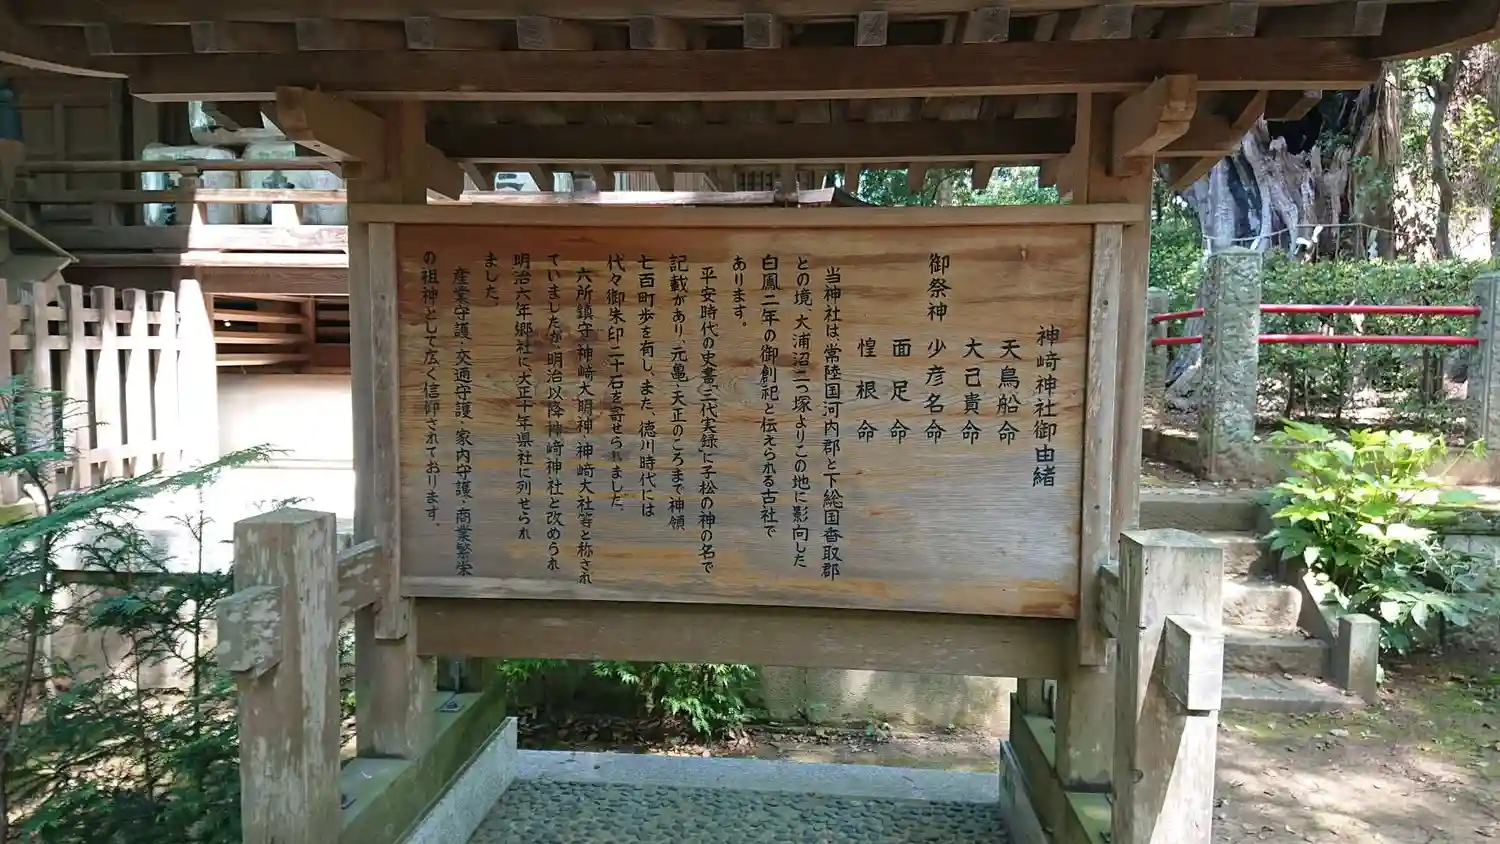 神崎神社御由緒
天鳥船命
大己貴命
御祭神 少彦名命
面足命
惶根命
当神社は、常陸国河内郡と下総国香取郡
との境、大浦沼二つ塚よりこの地に影向した
白鳳二年の御創祀と伝えられる古社で
あります。
平安時代の史書「三代実録」に子松の神の名で
記載があり、元亀・天正のころまで神領
七百町歩を有し、また、徳川時代には
代々御朱印二十石を寄せられました。
六所鎮守・神崎大明神・神崎大社等と称され
ていましたが、明治以降神崎神社と改められ
明治六年郷社に、大正十年県社に列せられ
ました。
産業守護・交通守護・家内守護・商業繁栄
の祖神として広く信仰されております。